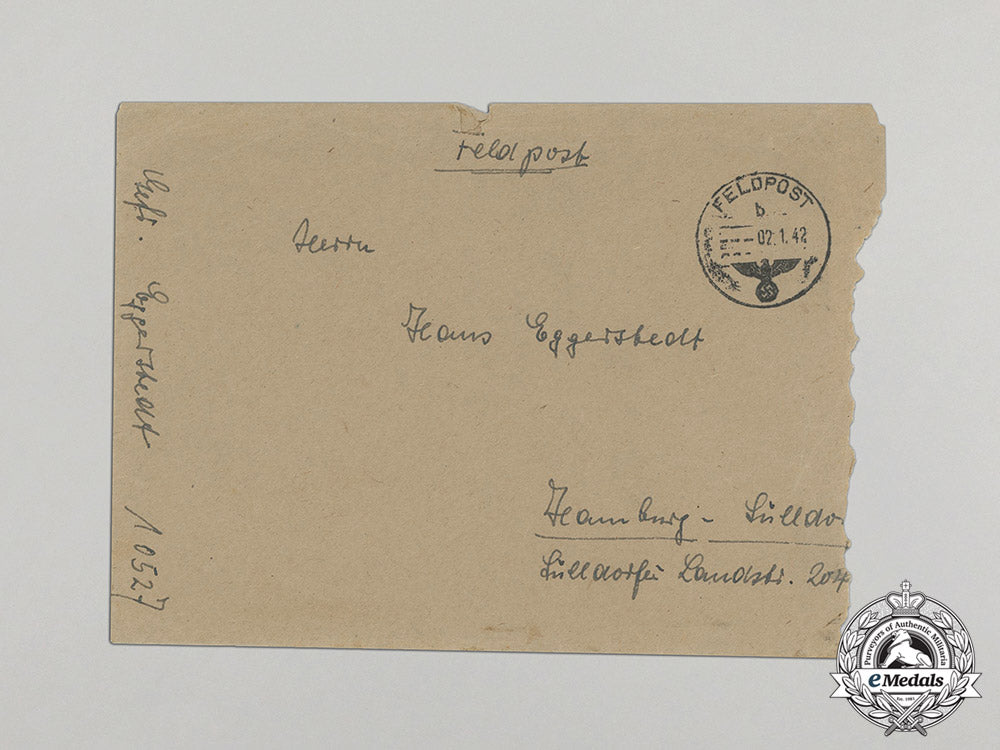 Feldpost
FELDPOST
b
02.1.42
Herrn
Hans Eggerstedt
Hamburg - Sülldo
Sülldorfer Landstr. 204
Gefr. Eggerstedt 10527
Purveyors of Authentic Militaria
eMedals